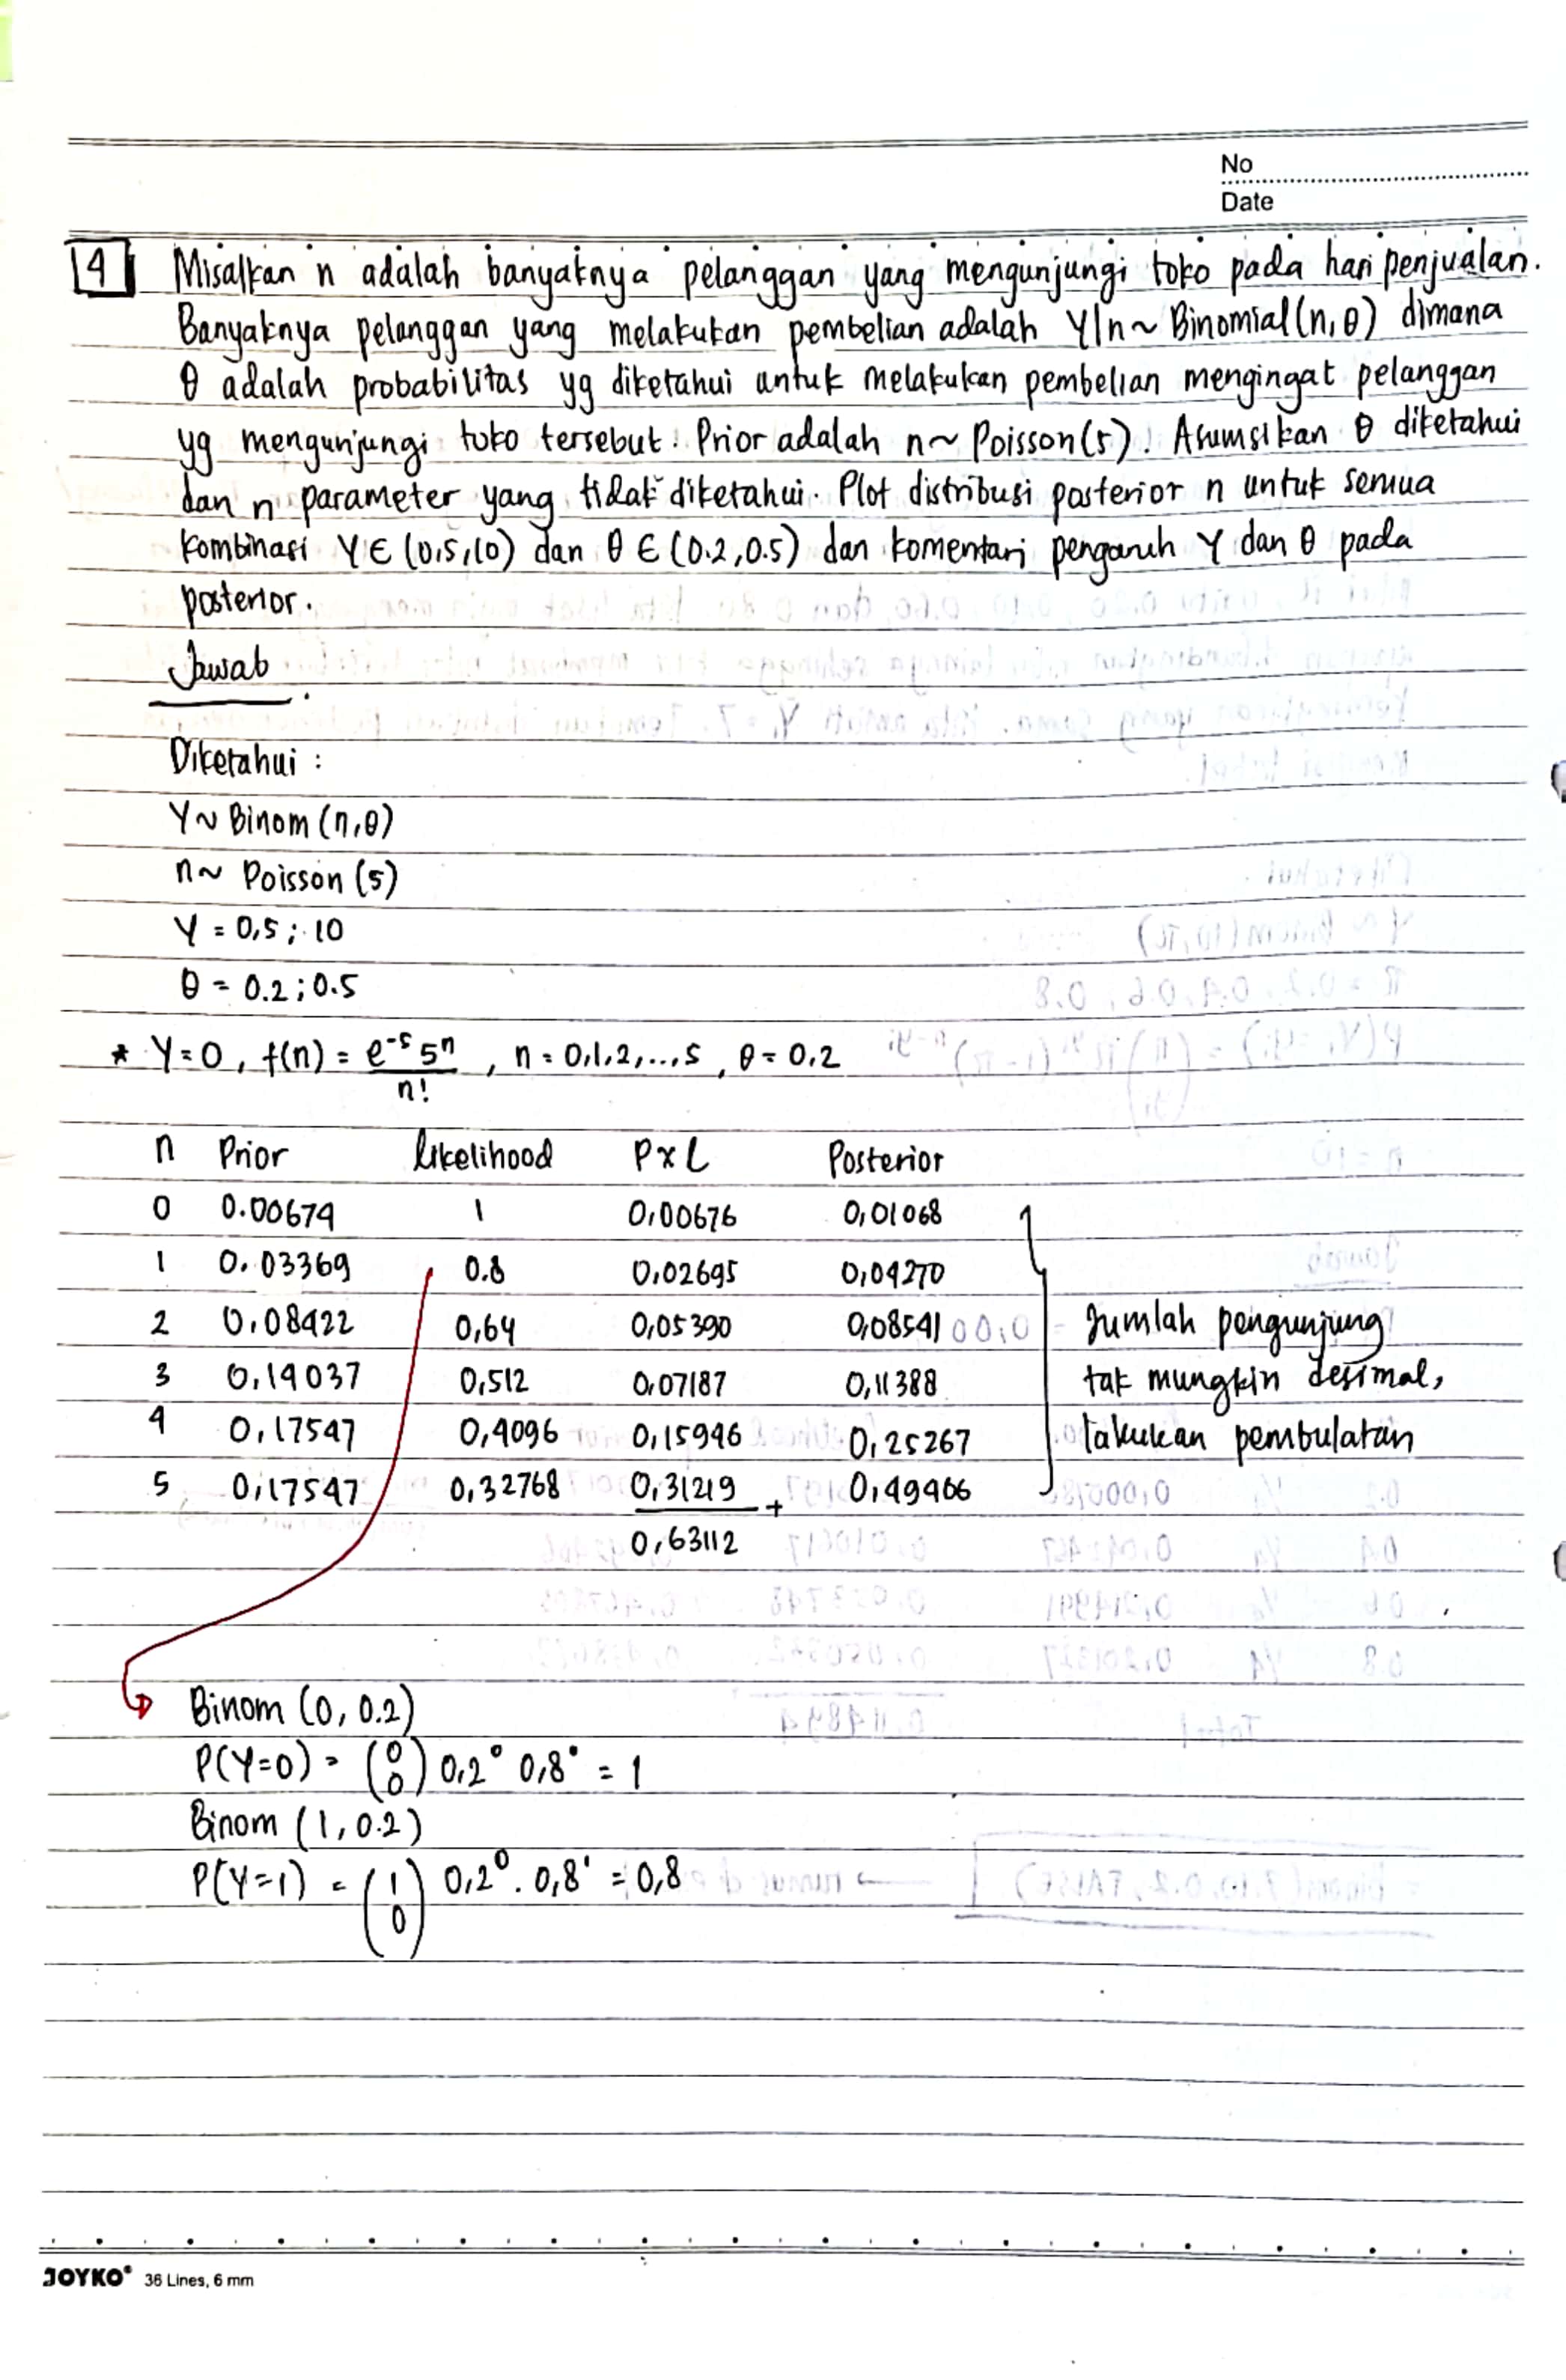 No
Date
4 Misalkan n adalah banyaknya pelanggan yang mengunjungi toko pada hari penjualan.
Banyaknya pelanggan yang melakukan pembelian adalah Y|n ~ Binomial (n, θ) dimana
θ adalah probabilitas yg diketahui untuk melakukan pembelian mengingat pelanggan
yg mengunjungi toko tersebut. Prior adalah n ~ Poisson (5). Asumsikan θ diketahui
dan n parameter yang tidak diketahui. Plot distribusi posterior n untuk semua
kombinasi Y ∈ (0,5,10) dan θ ∈ (0.2, 0.5) dan komentari pengaruh Y dan θ pada
posterior.
Jawab
Diketahui :
Y ~ Binom (n, θ)
n ~ Poisson (5)
Y = 0,5 ; 10
θ = 0.2 ; 0.5
* Y = 0, f(n) = e⁻⁵ 5ⁿ / n! , n = 0,1,2,...,5 , θ = 0,2
n Prior Likelihood P x L Posterior
0 0.00674 1 0,00676 0,01068
1 0.03369 0.8 0,02695 0,04270
2 0,08422 0,64 0,05390 0,08541 Jumlah pengunjung
3 0,14037 0,512 0,07187 0,11388 tak mungkin desimal,
4 0,17547 0,4096 0,15946 0,25267 lakukan pembulatan
5 0,17547 0,32768 0,31219 + 0,49466
0,63112
Binom (0, 0.2)
P(Y=0) = (0 0) 0,2⁰ 0,8⁰ = 1
Binom (1, 0.2)
P(Y=1) = (1 0) 0,2⁰ . 0,8¹ = 0,8
JOYKO® 36 Lines, 6 mm